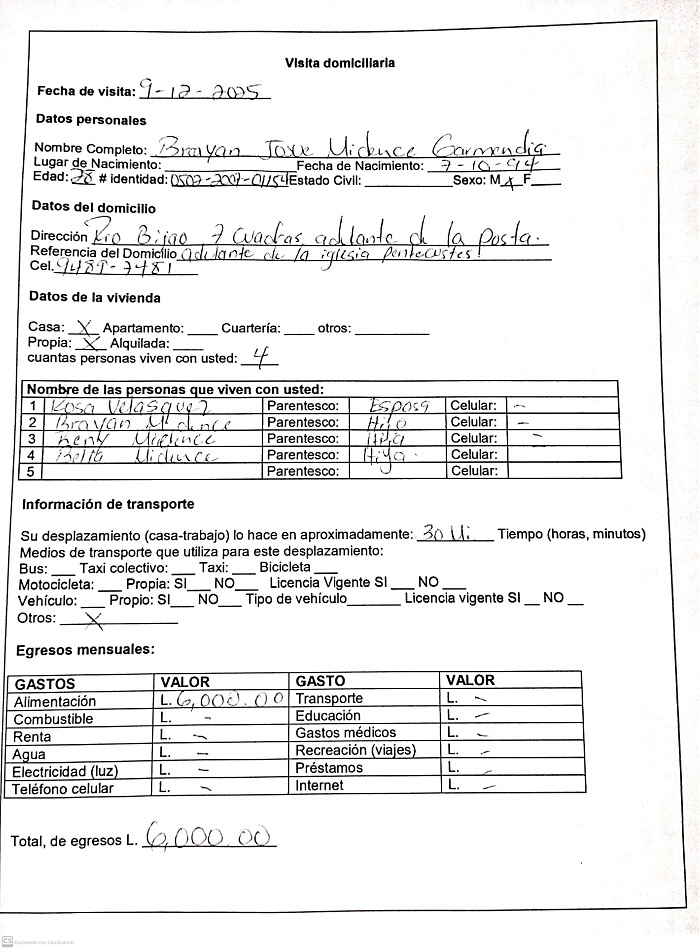 Visita domiciliaria
Fecha de visita: 9-12-2025
Datos personales
Nombre Completo: Brayan Midence Garmendia
Lugar de Nacimiento: ______ Fecha de Nacimiento: 7-10-94
Edad: 28 # identidad: 0502-2007-01154 Estado Civil: ______ Sexo: M x F___
Datos del domicilio
Dirección Rio Bijao 7 cuadras adelante de la posta.
Referencia del Domicilio adelante de la iglesia pentecostes
Cel. 9489-7481
Datos de la vivienda
Casa: X Apartamento: ____ Cuartería: ____ otros: ______
Propia: X Alquilada: ____
cuantas personas viven con usted: 4
Nombre de las personas que viven con usted:
1 Rosa Velasquez Parentesco: Esposa Celular: -
2 Brayan Midence Parentesco: Hijo Celular: -
3 Midence Parentesco: Hija Celular: -
4 Midence Parentesco: Hija. Celular:
5 Parentesco: Celular:
Información de transporte
Su desplazamiento (casa-trabajo) lo hace en aproximadamente: 30 Tiempo (horas, minutos)
Medios de transporte que utiliza para este desplazamiento:
Bus: ___ Taxi colectivo: ___ Taxi: ___ Bicicleta ___
Motocicleta: ___ Propia: SI___ NO___ Licencia Vigente SI ___ NO ___
Vehículo: ___ Propio: SI___ NO___ Tipo de vehículo______ Licencia vigente SI __ NO __
Otros: X
Egresos mensuales:
GASTOS VALOR GASTO VALOR
Alimentación L. 6,000.00 Transporte L. -
Combustible L. - Educación L. -
Renta L. - Gastos médicos L. -
Agua L. - Recreación (viajes) L. -
Electricidad (luz) L. - Préstamos L. -
Teléfono celular L. - Internet L. -
Total, de egresos L. 6,000.00
CS Escaneado con CamScanner